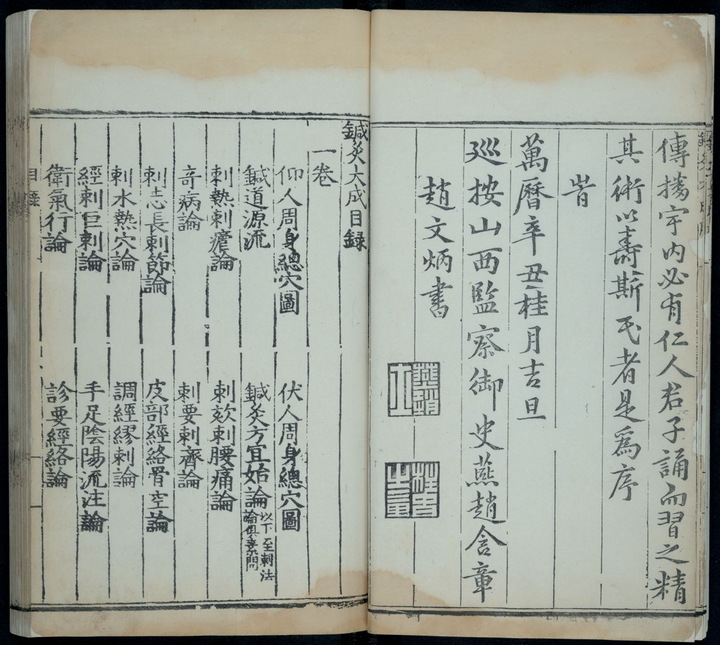 傳播宇內必有仁人君子誦而習之精
其術以壽斯民者是為序
旹
萬曆辛丑桂月吉旦
廵按山西監察御史燕趙含章
趙文炳書
鍼灸大成目録
一卷
仰人周身總穴圖
伏人周身總穴圖
鍼道源流
鍼灸方宜始論以下至刺法論俱素問
刺熱刺瘧論
刺欬刺腰痛論
奇病論
刺要刺齊論
刺志長刺節論
皮部經絡骨空論
刺水熱穴論
調經繆刺論
經刺巨刺論
手足陰陽流注論
衛氣行論
診要經絡論
目録